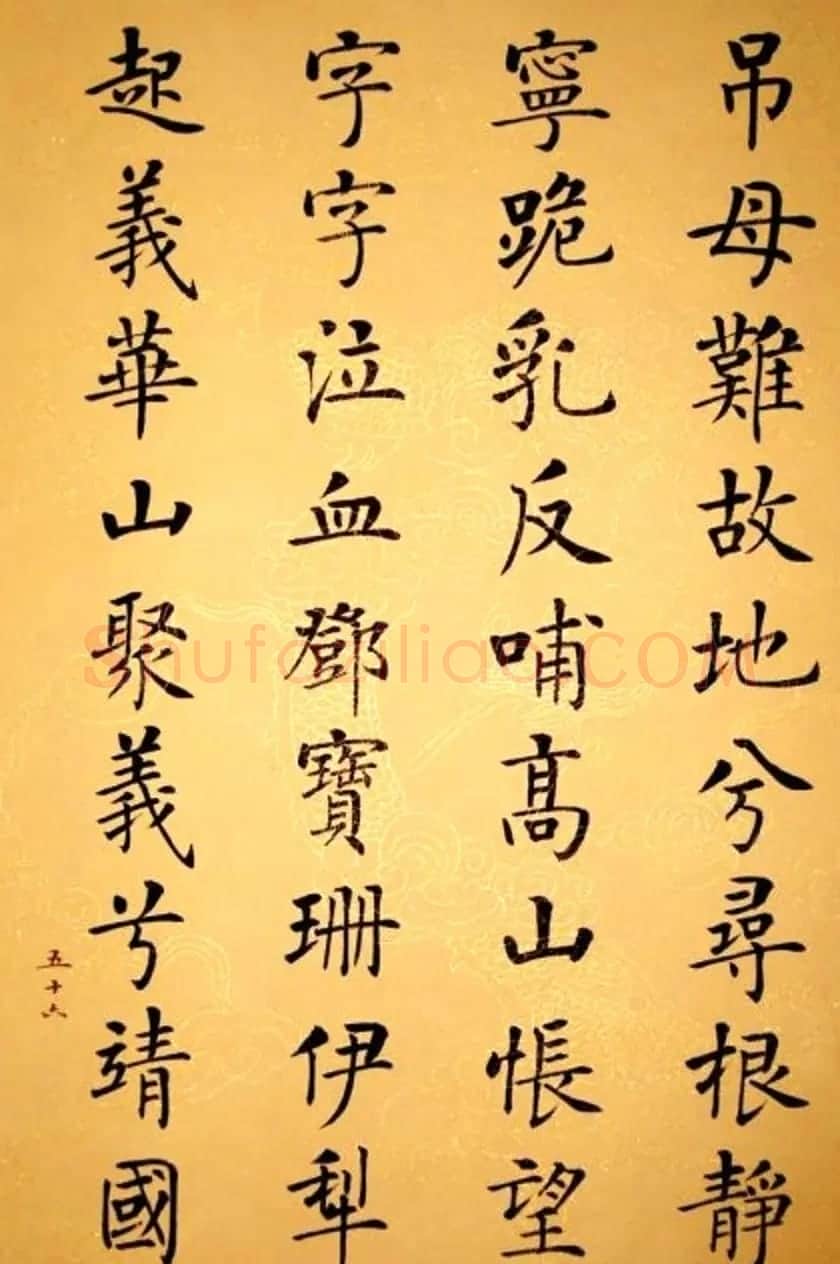 吊母難故地兮尋根靜
寧跪乳反哺高山悵望
字字泣血鄧寶珊伊犁
起義華山聚義兮靖國
五十六
shufaziliao.com